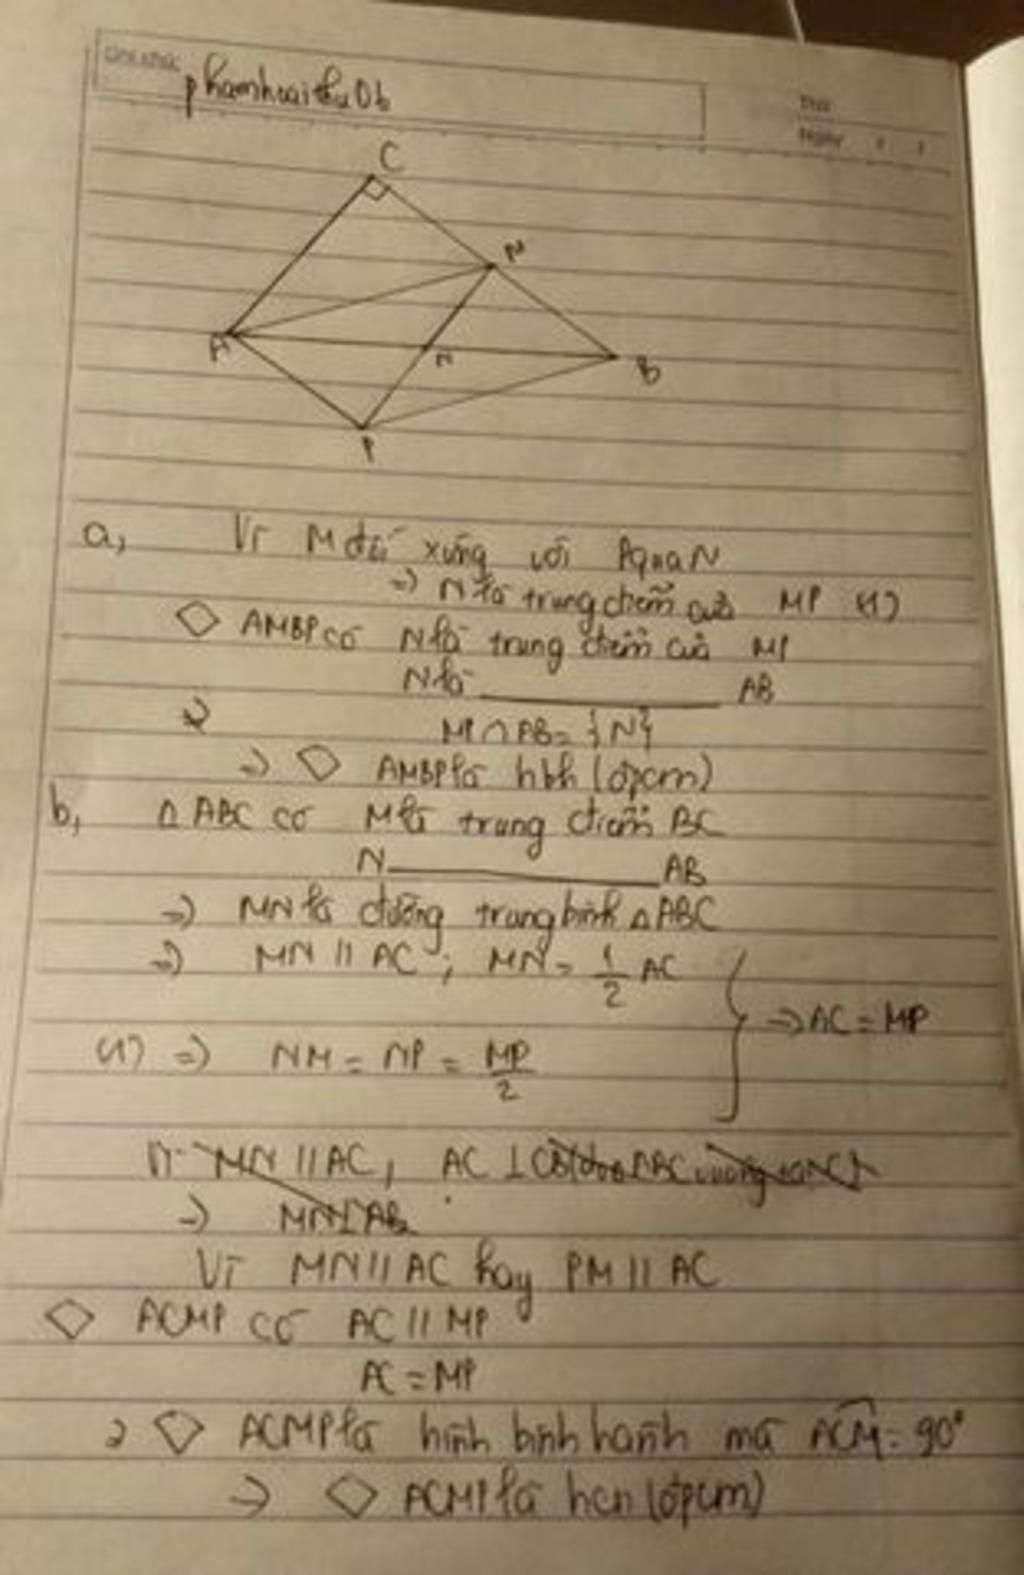 Ghi chú:
phamhoaithu06
Thứ
Ngày
C
M
A
N
B
P
a, Vì M đối xứng với P qua N
=> N là trung điểm của MP (1)
◇ AMBP có N là trung điểm của MP
N là ________ AB
MP ∩ AB = {N}
=> ◇ AMBP là hbh (đpcm)
b, Δ ABC có M là trung điểm BC
N ________ AB
=> MN là đường trung bình Δ ABC
=> MN // AC ; MN = 1/2 AC
=> AC = MP
(1) => NM = NP = MP/2
Vì MN // AC, AC ⊥ CB (do ΔABC vuông tại C)
=> MN ⊥ AB
Vì MN // AC hay PM // AC
◇ ACMP có AC // MP
AC = MP
=> ◇ ACMP là hình bình hành mà ACM = 90°
=> ◇ ACMP là hcn (đpcm)